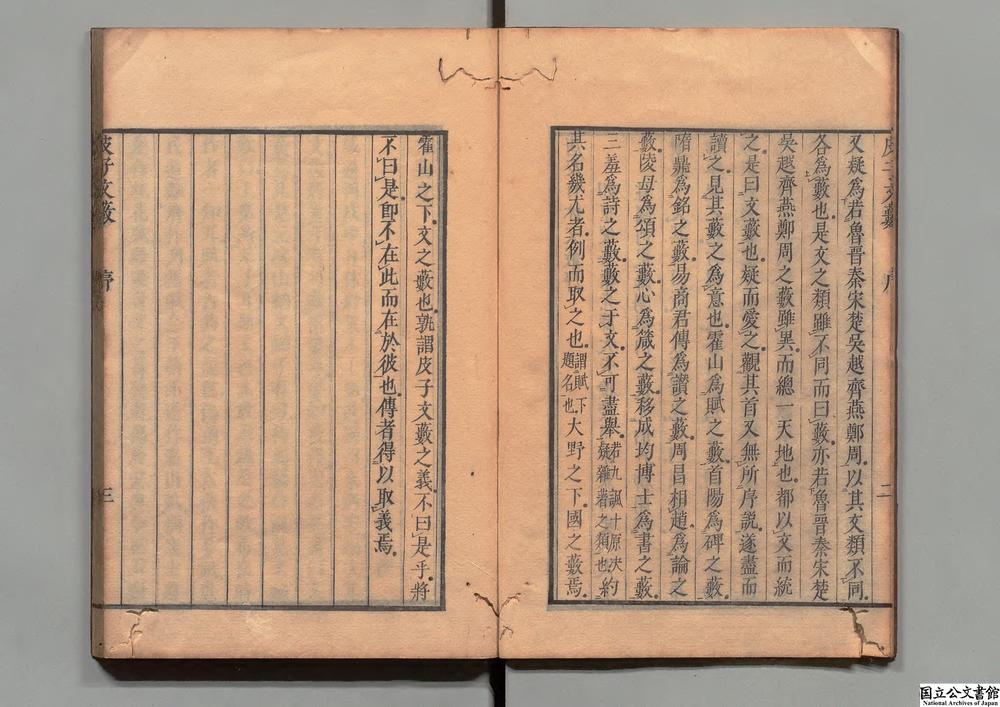 又疑爲若魯晋秦宋楚吳越齊燕鄭周以其文類不同
各爲藪也是文之類雖不同而曰藪亦若魯晋秦宋楚
吳越齊燕鄭周之藪雖異而總一天地也都以文而統
之是曰文藪也疑而愛之觀其首又無所序説遂盡而
讀之見其藪之爲意也霍山爲賦之藪首陽爲碑之藪
隋鼎爲銘之藪易商君傳爲讃之藪周昌相趙爲論之
藪陵母爲頌之藪心爲箴之藪移成均博士爲書之藪
三羞爲詩之藪藪之于文不可盡舉若九諷十原決疑雜著之類也約
其名幾尤者例而取之也謂賦下題名也大野之下國之藪焉
霍山之下文之藪也孰謂皮子文藪之義不曰是乎將
不曰是卽不在此而在於彼也傳者得以取義焉
皮子文藪 序 二
皮子文藪 序 三
国立公文書館
National Archives of Japan